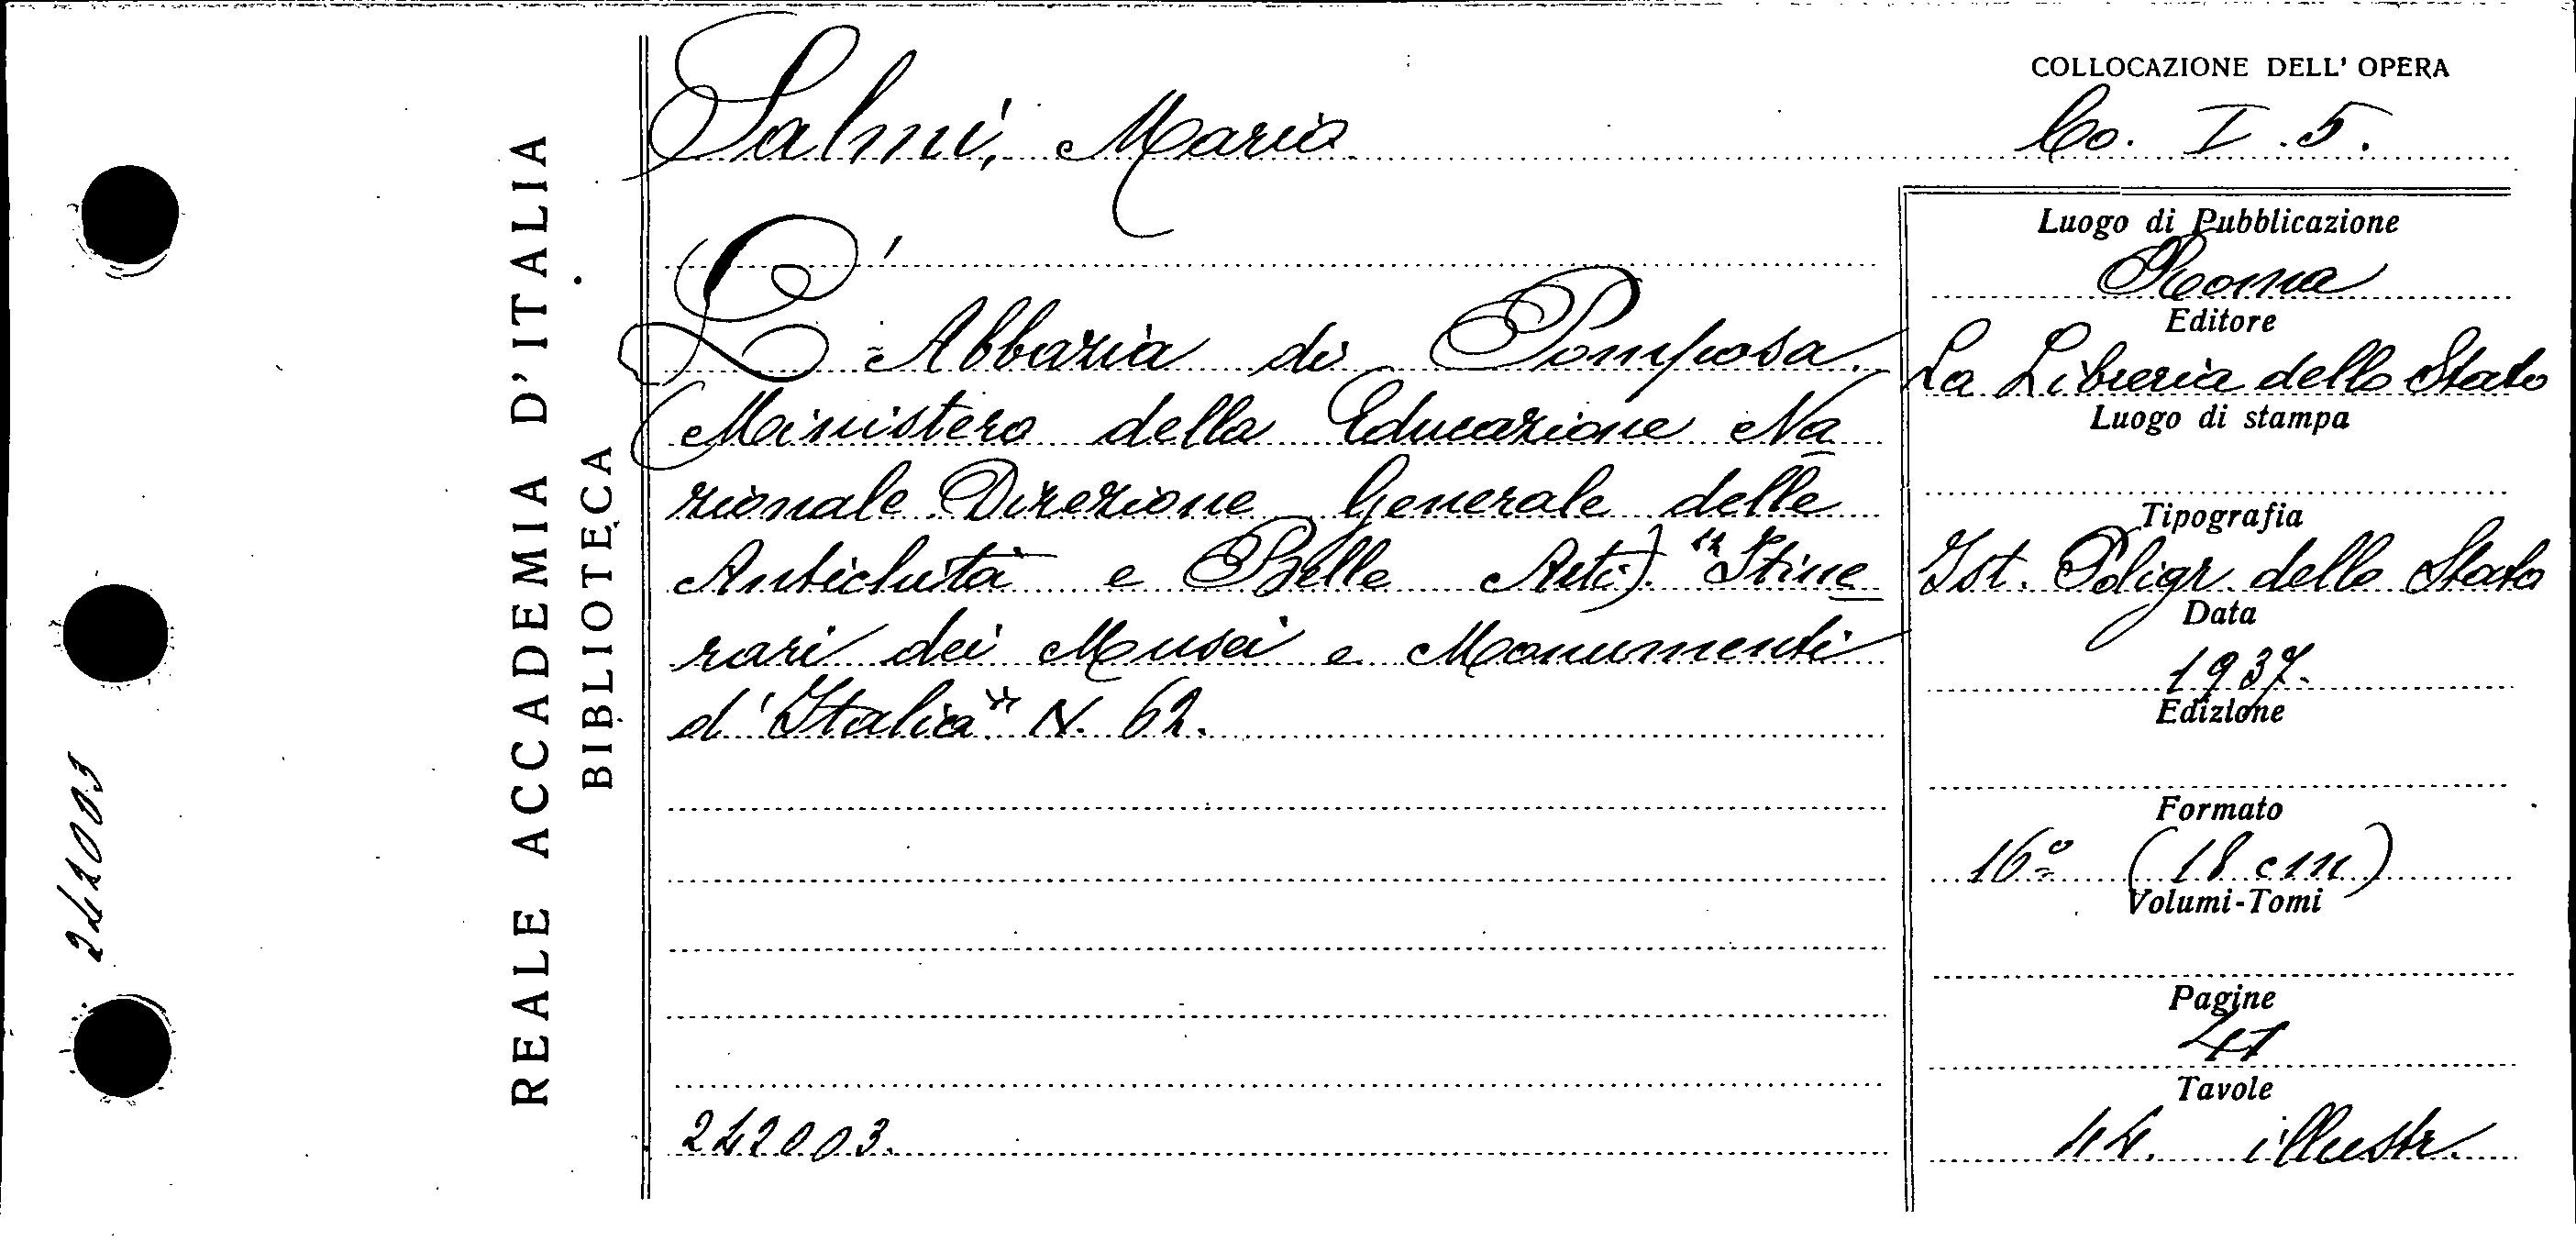 REALE ACCADEMIA D'ITALIA
BIBLIOTECA
242003
Salmi, Mario
L'Abbazia di Pomposa.
(Ministero della Educazione Na
zionale Direzione Generale delle
Antichità e Belle Arti). "Itine
rari dei Musei e Monumenti
d'Italia" N. 62.
242003.
COLLOCAZIONE DELL' OPERA
Co. I. 5.
Luogo di Pubblicazione
Roma
Editore
La Libreria dello Stato
Luogo di stampa
Tipografia
Ist. Poligr. dello Stato
Data
1937.
Edizione
Formato
16º (18 cm)
Volumi-Tomi
Pagine
41
Tavole
illustr.